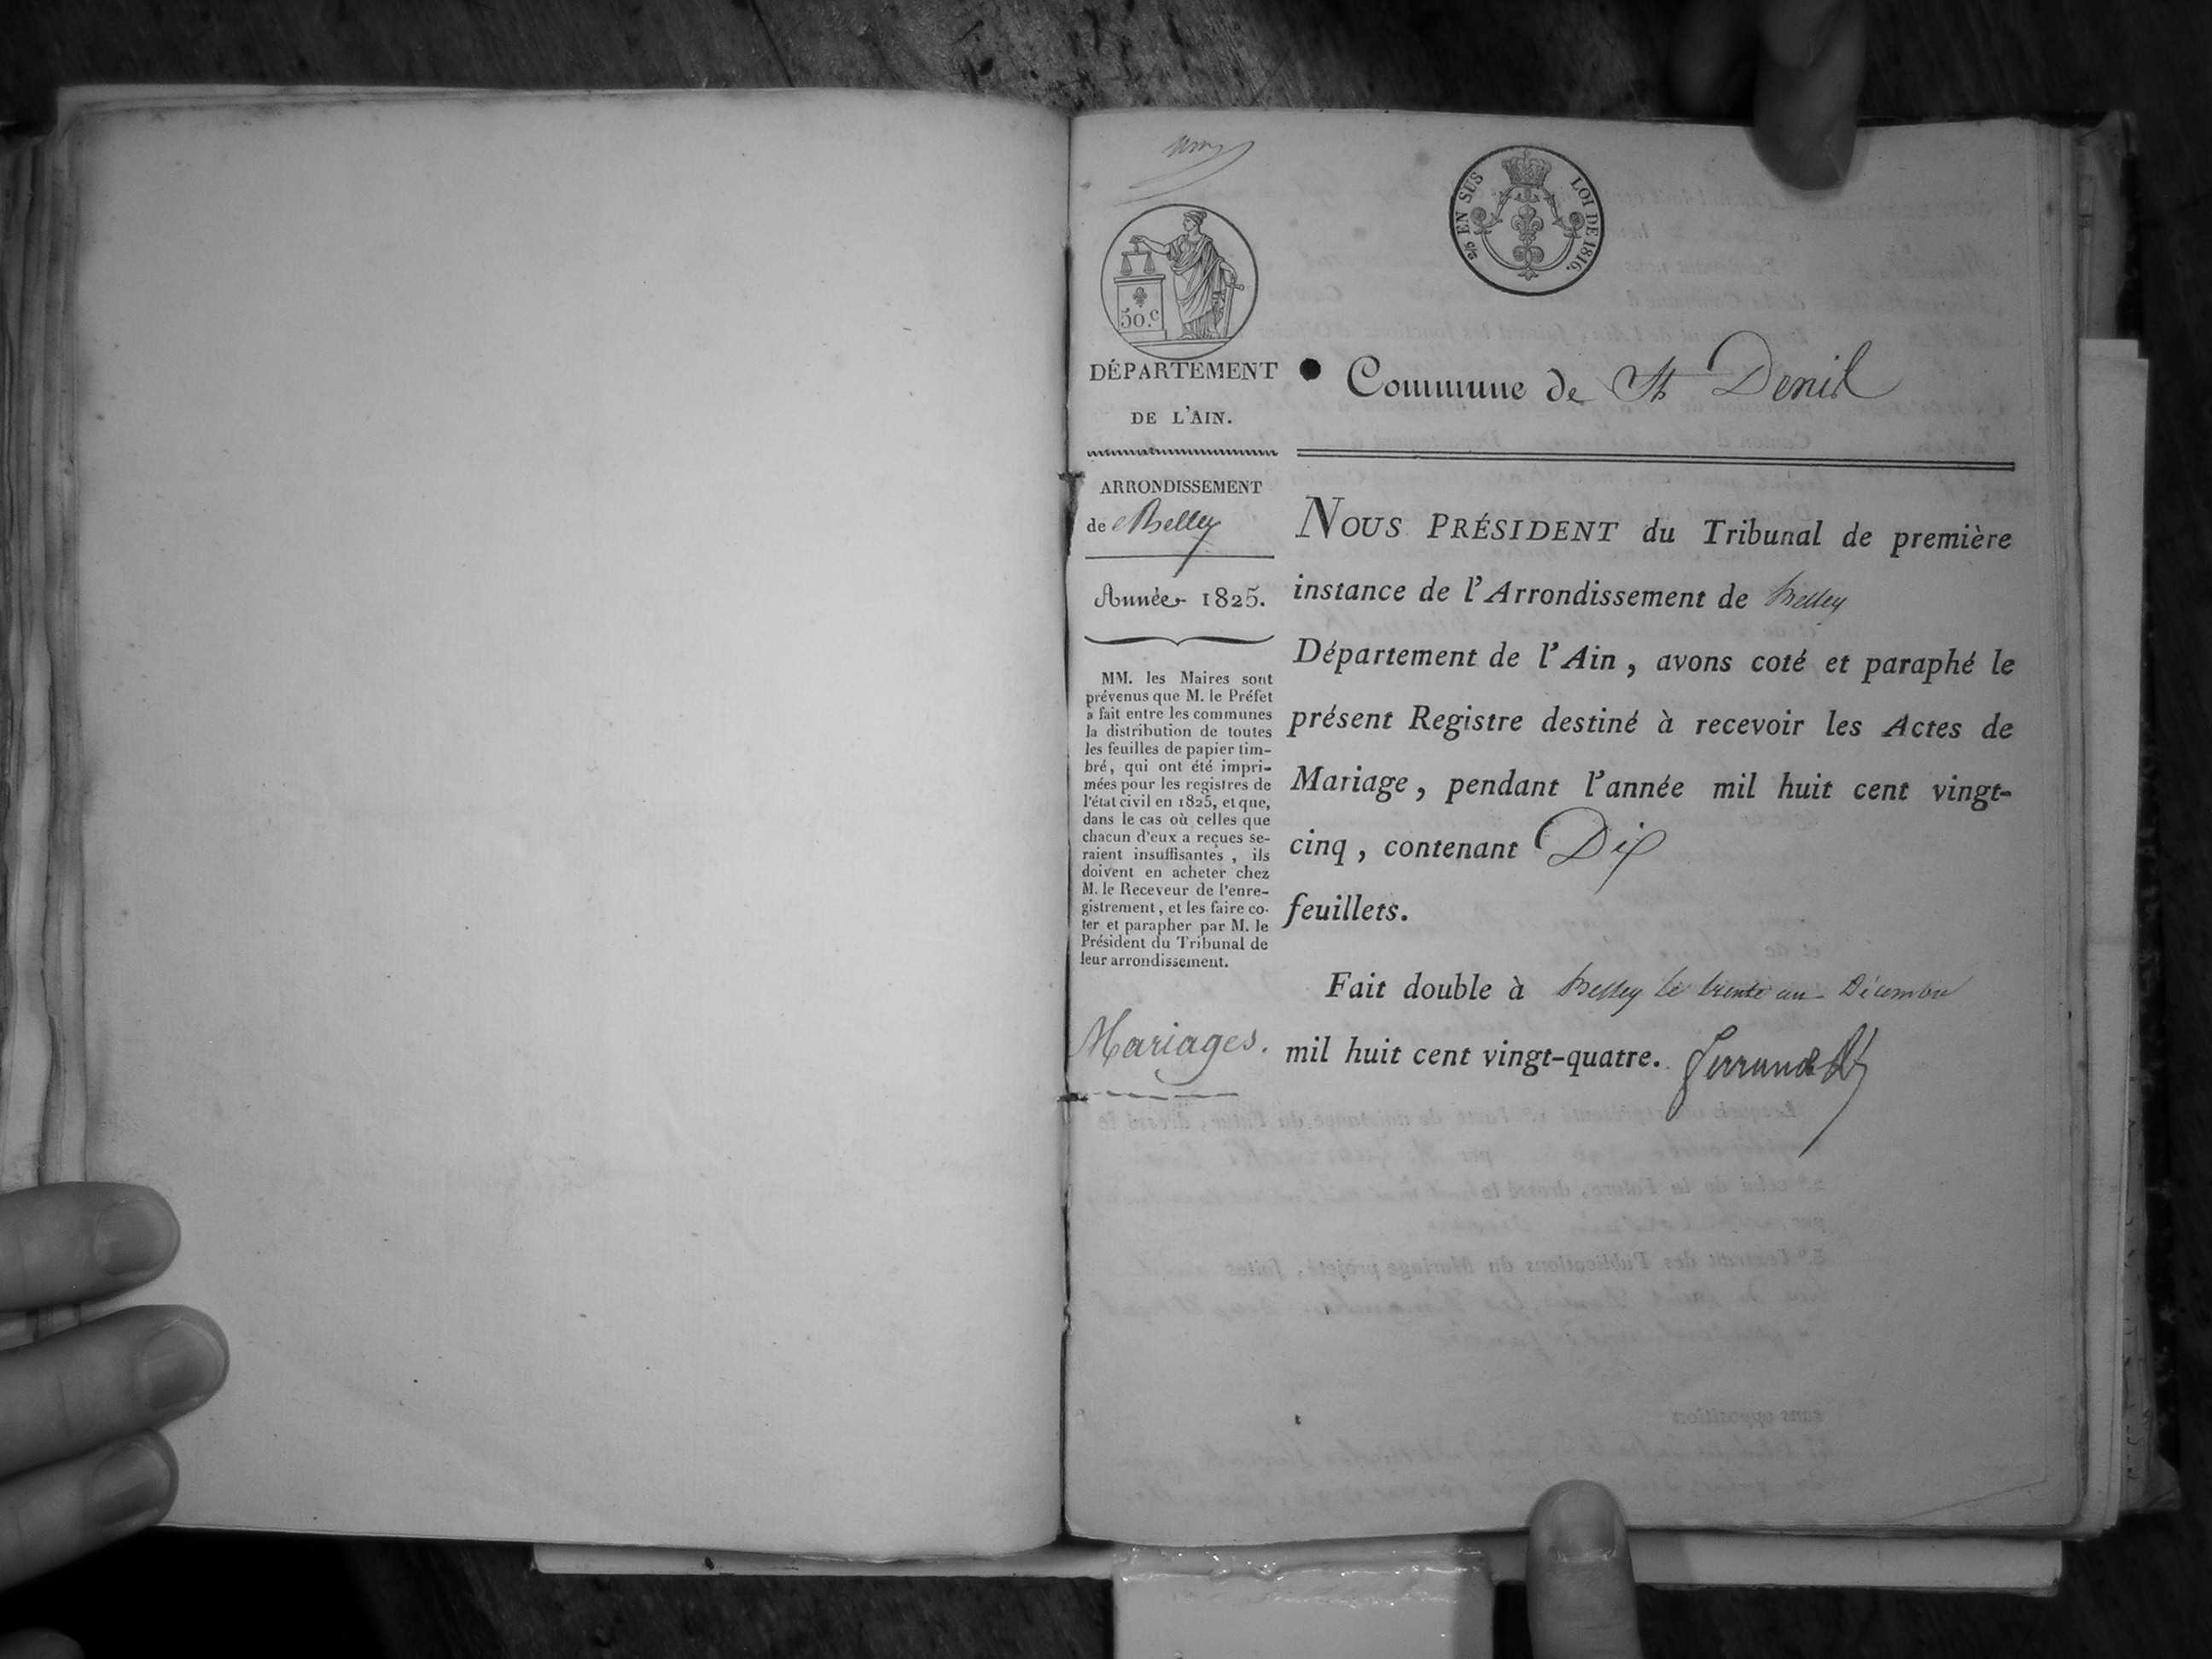 2/5 EN SUS
LOI DE 1816.
50.c
DÉPARTEMENT
DE L'AIN.
Commune de St Denis
ARRONDISSEMENT
de Belley
Année 1825.
MM. les Maires sont
prévenus que M. le Préfet
a fait entre les communes
la distribution de toutes
les feuilles de papier tim-
bré, qui ont été impri-
mées pour les registres de
l'état civil en 1825, et que,
dans le cas où celles que
chacun d'eux a reçues se-
raient insuffisantes, ils
doivent en acheter chez
M. le Receveur de l'enre-
gistrement, et les faire co-
ter et parapher par M. le
Président du Tribunal de
leur arrondissement.
Mariages.
NOUS PRÉSIDENT du Tribunal de première
instance de l'Arrondissement de Belley
Département de l'Ain, avons coté et paraphé le
présent Registre destiné à recevoir les Actes de
Mariage, pendant l'année mil huit cent vingt-
cinq, contenant Dix
feuillets.
Fait double à Belley le trente un Décembre
mil huit cent vingt-quatre.